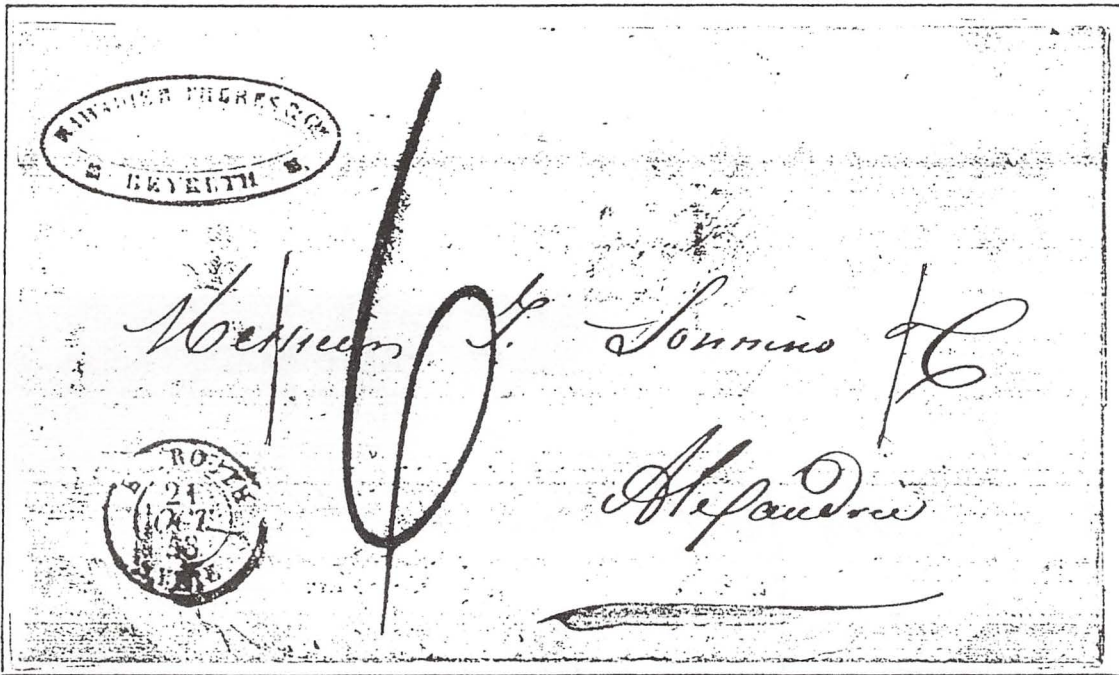 FRERES & Cie
BEYRUTH
6
Messieurs J. Sonnino & C
Alexandrie
BEYROUTH
21
OCT
58
SYRIE